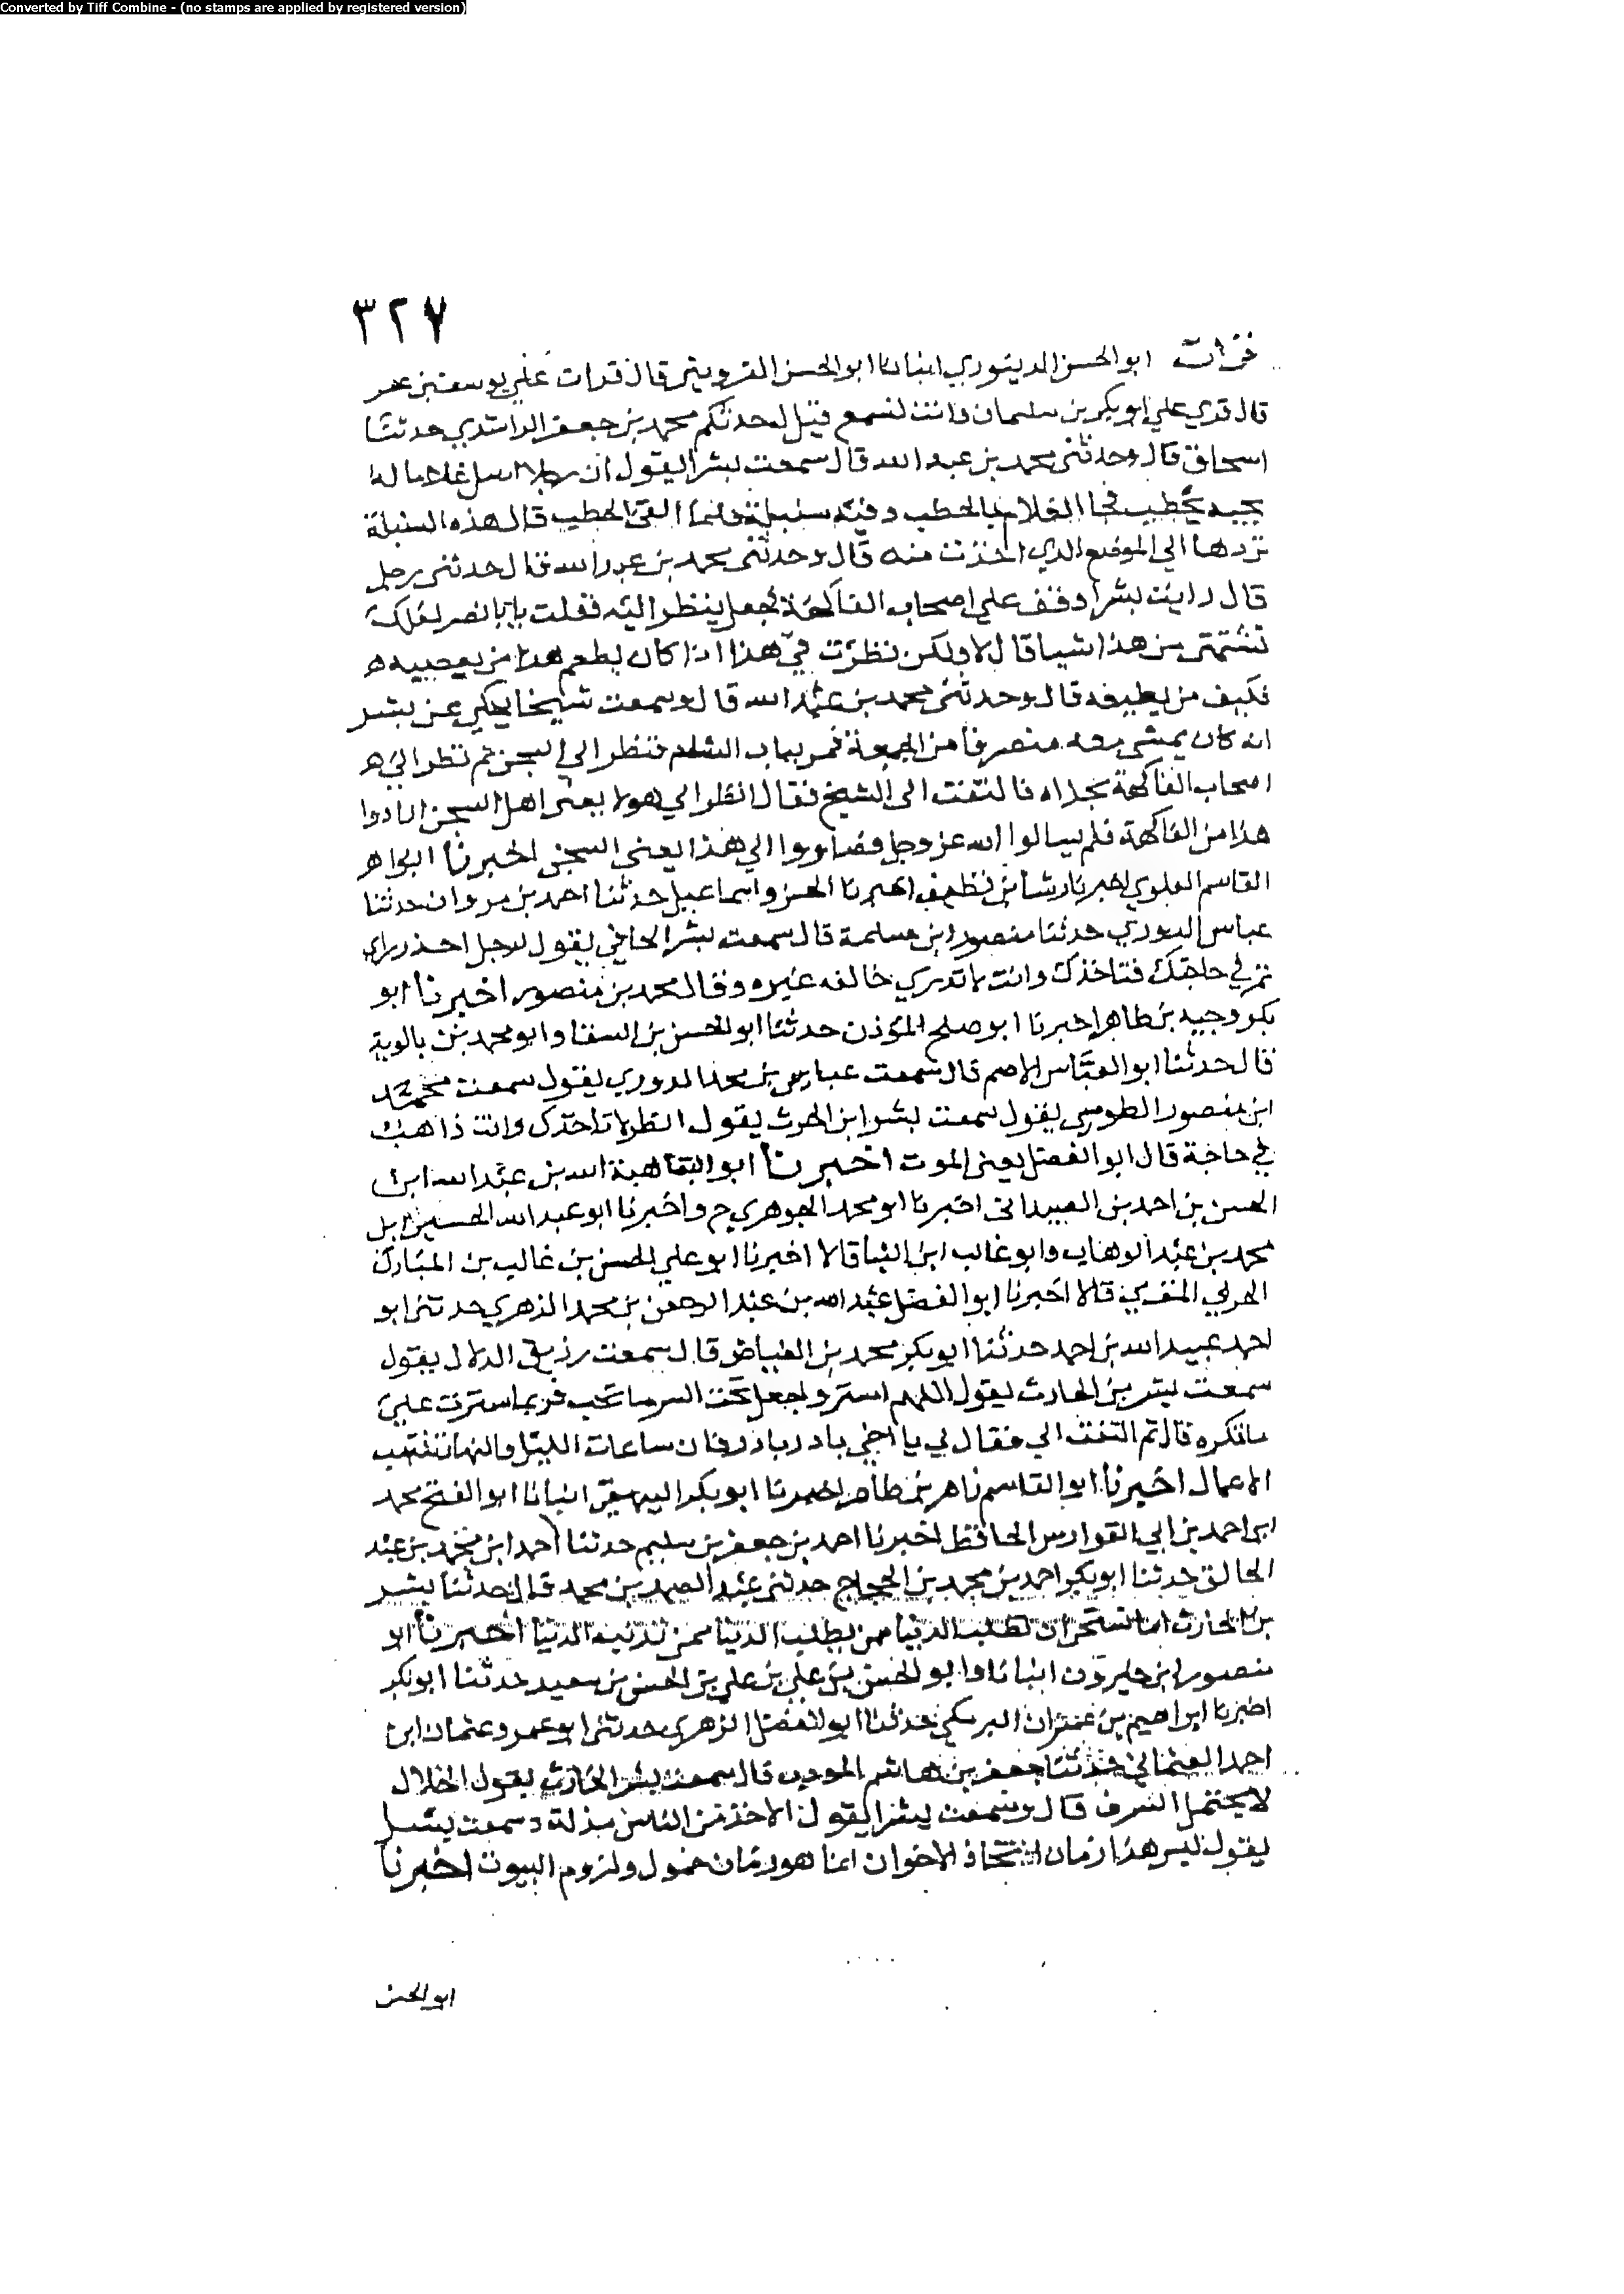 Converted by Tiff Combine - (no stamps are applied by registered version)
٣٢٧
ابو الحسن الدينوري انبانا ابو الحسن القزويني قال قرات علي يوسف بن عمر
قال قري علي ابو بكر بن سلمان وانت تسمع قيل له حدثكم محمد بن جعفر الراشدي حدثنا
اسحاق قال وحدثني محمد بن عبد الله قال سمعت بشرا يقول ان رجلا ارسل غلاما له
يحطب فجا الغلام بالحطب وفيه سنبلة فلما القى الحطب قال هذه السنبلة
تردها الي الموضع الذي اخذت منه قال وحدثني محمد بن عبد الله قال حدثني رجل
قال رايت بشرا وقف علي اصحاب الفاكهة فجعل ينظر اليه فقلت يا بانصر لعلك
تشتهي من هذا شيا قال لا ولكن نظرت في هذا اذا كان يطعم هذا من يعصيه ه
فكيف من يطيعه قال وحدثني محمد بن عبد الله قال وسمعت شيخا يحكي عن بشر
انه كان يمشي معه منصرفا من الجمعة فمر بباب الشام فنظر الي السجن ثم نظر الي ه
اصحاب الفاكهة بحذاه فالتفت الى الشيخ فقال انظر الي هولا يعني اهل السجن ارادوا
هذا من الفاكهة فلم يسالوا الله عز وجل فصاروا الي هذا يعني السجن اخبرنا ه
القاسم العلوي اخبرنا رشا بن نظيف اخبرنا الحسن واسماعيل حدثنا احمد بن مروان حدثنا
عباس الدوري حدثنا منصور ابن مسلمة قال سمعت بشر الحافي يقول لرجل احذر
تمر في حاجتك فتاخذك وانت لا تدري خالفه غيره وقال محمد بن منصور اخبرنا ابو
بكر وجيه بن طاهر اخبرنا ابو صلح المؤذن حدثنا ابو الحسن بن السقا وابو محمد بن بالوية
قال حدثنا ابو العباس الاصم قال سمعت عباس بن محمد الدوري يقول سمعت محمد
ابن منصور الطوسي يقول سمعت بشر ابن الحرث يقول انظر لا تاخذك وانت ذاهب
في حاجة قال ابو الفضل يعني الموت اخبرنا ابو البقا هبة الله بن عبد الله ابن
الحسن بن احمد بن اخبرنا ابو محمد الجوهري ح واخبرنا ابو عبد الله الحسين ابن
محمد بن عبد الوهاب وابو غالب ابن البنا قالا اخبرنا ابو علي الحسن بن غالب بن المبارك
الحربي المقري قالا اخبرنا ابو الفضل عبيد الله بن عبد الرحمن بن محمد الزهري حدثني ابو
احمد عبيد الله بن احمد حدثنا ابو بكر محمد بن الفياض قال سمعت رزيق الدلال يقول
سمعت بشر بن الحارث يقول اللهم استر واجعل تحت الستر ما تحب فربما سترت علي
ما تكره قال ثم التفت الي فقال لي يا اخي بادر بادر فان ساعات الليل والنهار تنتهب
الاعمال اخبرنا ابو القاسم زاهر بن طاهر اخبرنا ابو بكر البيهقي انبانا ابو الفتح محمد
ابن احمد بن ابي الفوارس الحافظ اخبرنا احمد بن جعفر بن سليم حدثنا احمد ابن محمد بن عبد
الخالق حدثنا ابو بكر احمد بن محمد بن الحجاج حدثني عبد الصمد بن محمد قال حدثنا بشر
بن الحارث اما تستحي ان تطلب الدنيا ممن يطلب الدنيا ممن الدنيا اخبرنا ابو
منصور ابن خيرون انبانا وابو الحسن بن علي بن الحسن بن سعيد حدثنا ابو بكر
اخبرنا ابراهيم بن عمر البرمكي حدثنا ابو الفضل الزهري حدثني ابو عمرو عثمان ابن
احمد العثماني حدثنا جعفر بن هاشم المودب قال سمعت بشر الحارث يقول الحلال
لا يحتمل السرف قال وسمعت بشرا يقول الاخذ من الناس مذلة وسمعت بشر
يقول ليس هذا زمان اتخاذ الاخوان انما هو زمان خمول ولزوم البيوت اخبرنا
ابو الحسن